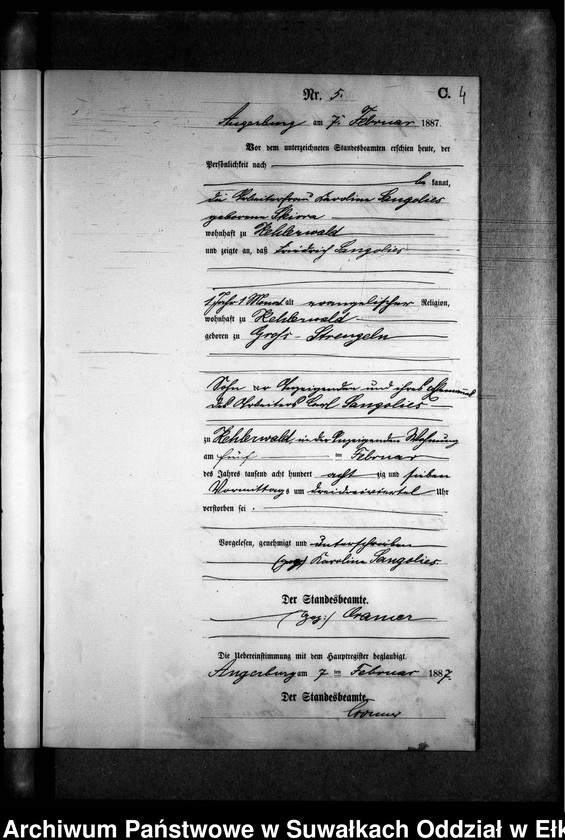 Nr. 5. C. 4
Angerburg am 7. Februar 1887.
Vor dem unterzeichneten Standesbeamten erschien heute, der
Persönlichkeit nach
be kannt,
die Arbeiterfrau Karoline Sangolies
geborene Skiora
wohnhaft zu Kehlerwald
und zeigte an, daß Friedrich Sangolies
1 Jahr 1 Monat alt evangelischer Religion,
wohnhaft zu Kehlerwald
geboren zu Groß-Strengeln
Sohn der Anzeigenden und ihres Ehemannes
des Arbeiters Carl Sangolies
zu Kehlerwald, in der Anzeigenden Wohnung
am fünf ten Februar
des Jahres tausend acht hundert acht zig und sieben
Vormittags um dreidreiviertel Uhr
verstorben sei.
Vorgelesen, genehmigt und unterschrieben
(gez.) Karoline Sangolies.
Der Standesbeamte.
(gez:) Cramer
Die Uebereinstimmung mit dem Hauptregister beglaubigt.
Angerburg am 7 ten Februar 1887.
Der Standesbeamte.
Cramer
Archiwum Państwowe w Suwałkach Oddział w Ełk